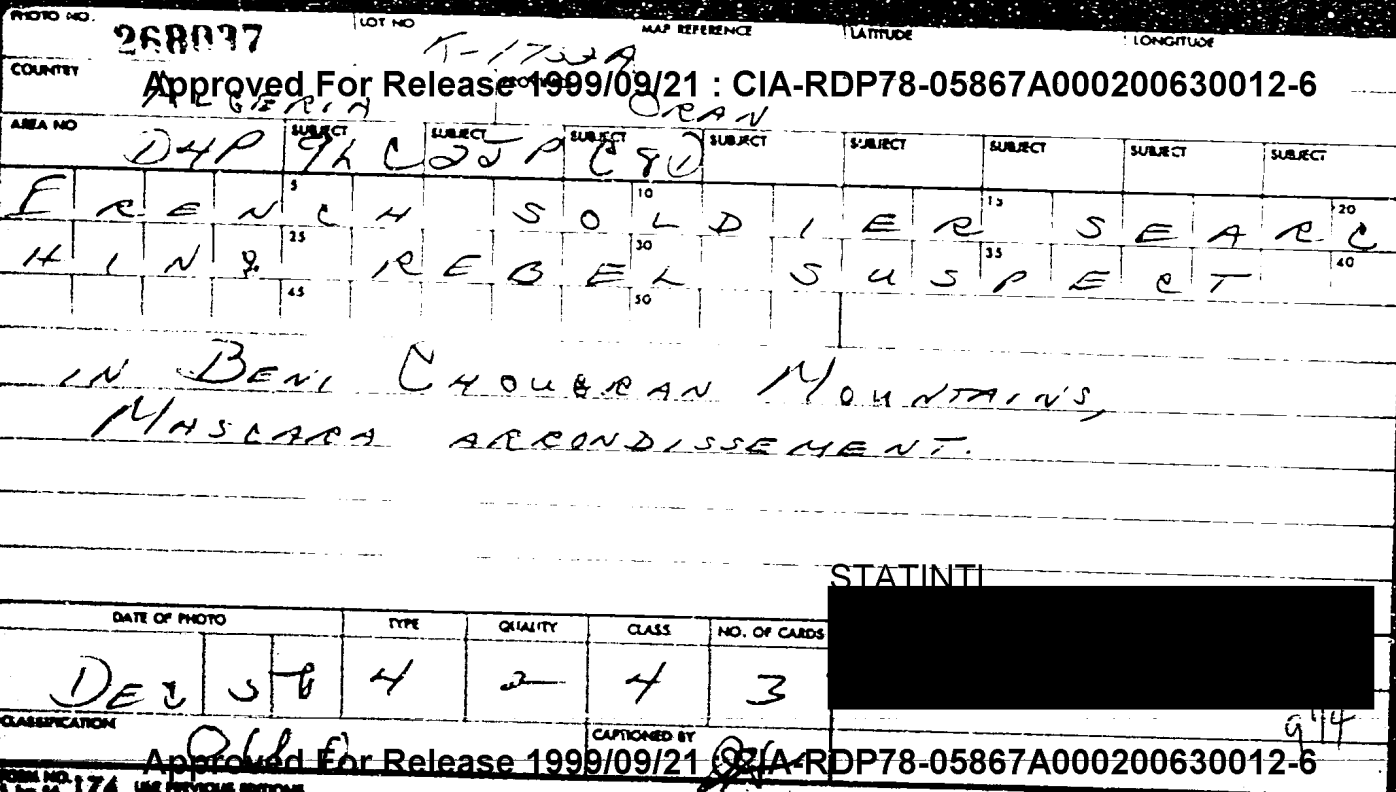 PHOTO NO. LOT NO MAP REFERENCE LATITUDE LONGITUDE
268037 K-1732A
COUNTRY
Approved For Release 1999/09/21 : CIA-RDP78-05867A000200630012-6
ALGERIA ORAN
AREA NO SUBJECT SUBJECT SUBJECT SUBJECT SUBJECT SUBJECT SUBJECT SUBJECT
D4P
5 10 15 20
FRENCH SOLDIER SEARC
25 30 35 40
HING REBEL SUSPECT
45 50
IN BENI CHOUGRAN MOUNTAINS,
MASCARA ARRONDISSEMENT.
STATINTL
DATE OF PHOTO TYPE QUALITY CLASS NO. OF CARDS
DEC 4 2 4 3
CLASSIFICATION CAPTIONED BY
Approved For Release 1999/09/21 : CIA-RDP78-05867A000200630012-6
FORM NO. 174 USE PREVIOUS EDITIONS